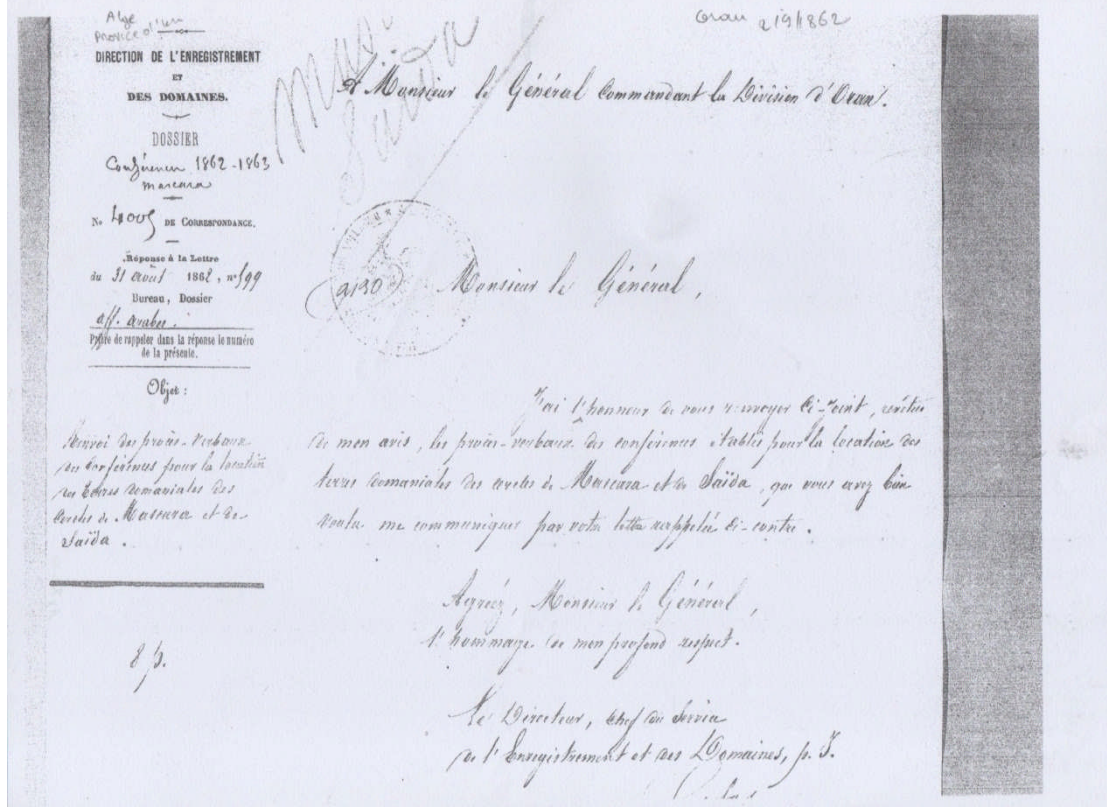 Alge
Province d'
DIRECTION DE L'ENREGISTREMENT
ET
DES DOMAINES.
DOSSIER
Conférences 1862-1863
mascara
No 4005 DE CORRESPONDANCE.
Réponse à la Lettre
du 31 août 1862, no 599
Bureau, Dossier
aff. arabes.
Prière de rappeler dans la réponse le numéro
de la présente.
Objet :
Renvoi des procès-verbaux
des Conférences pour la location
des terres domaniales des
Cercles de Mascara et de
Saïda.
8 p.
Oran 2/9/1862
Saïda
A Monsieur le Général Commandant la Division d'Oran.
2130
Monsieur le Général,
J'ai l'honneur de vous renvoyer ci-joint, revêtus
de mon avis, les procès-verbaux des conférences établis pour la location des
terres domaniales des cercles de Mascara et de Saïda, que vous avez bien
voulu me communiquer par votre lettre rappelée ci-contre.
Agréez, Monsieur le Général,
l'hommage de mon profond respect.
Le Directeur, chef du Service
de l'Enregistrement et des Domaines, p. I.